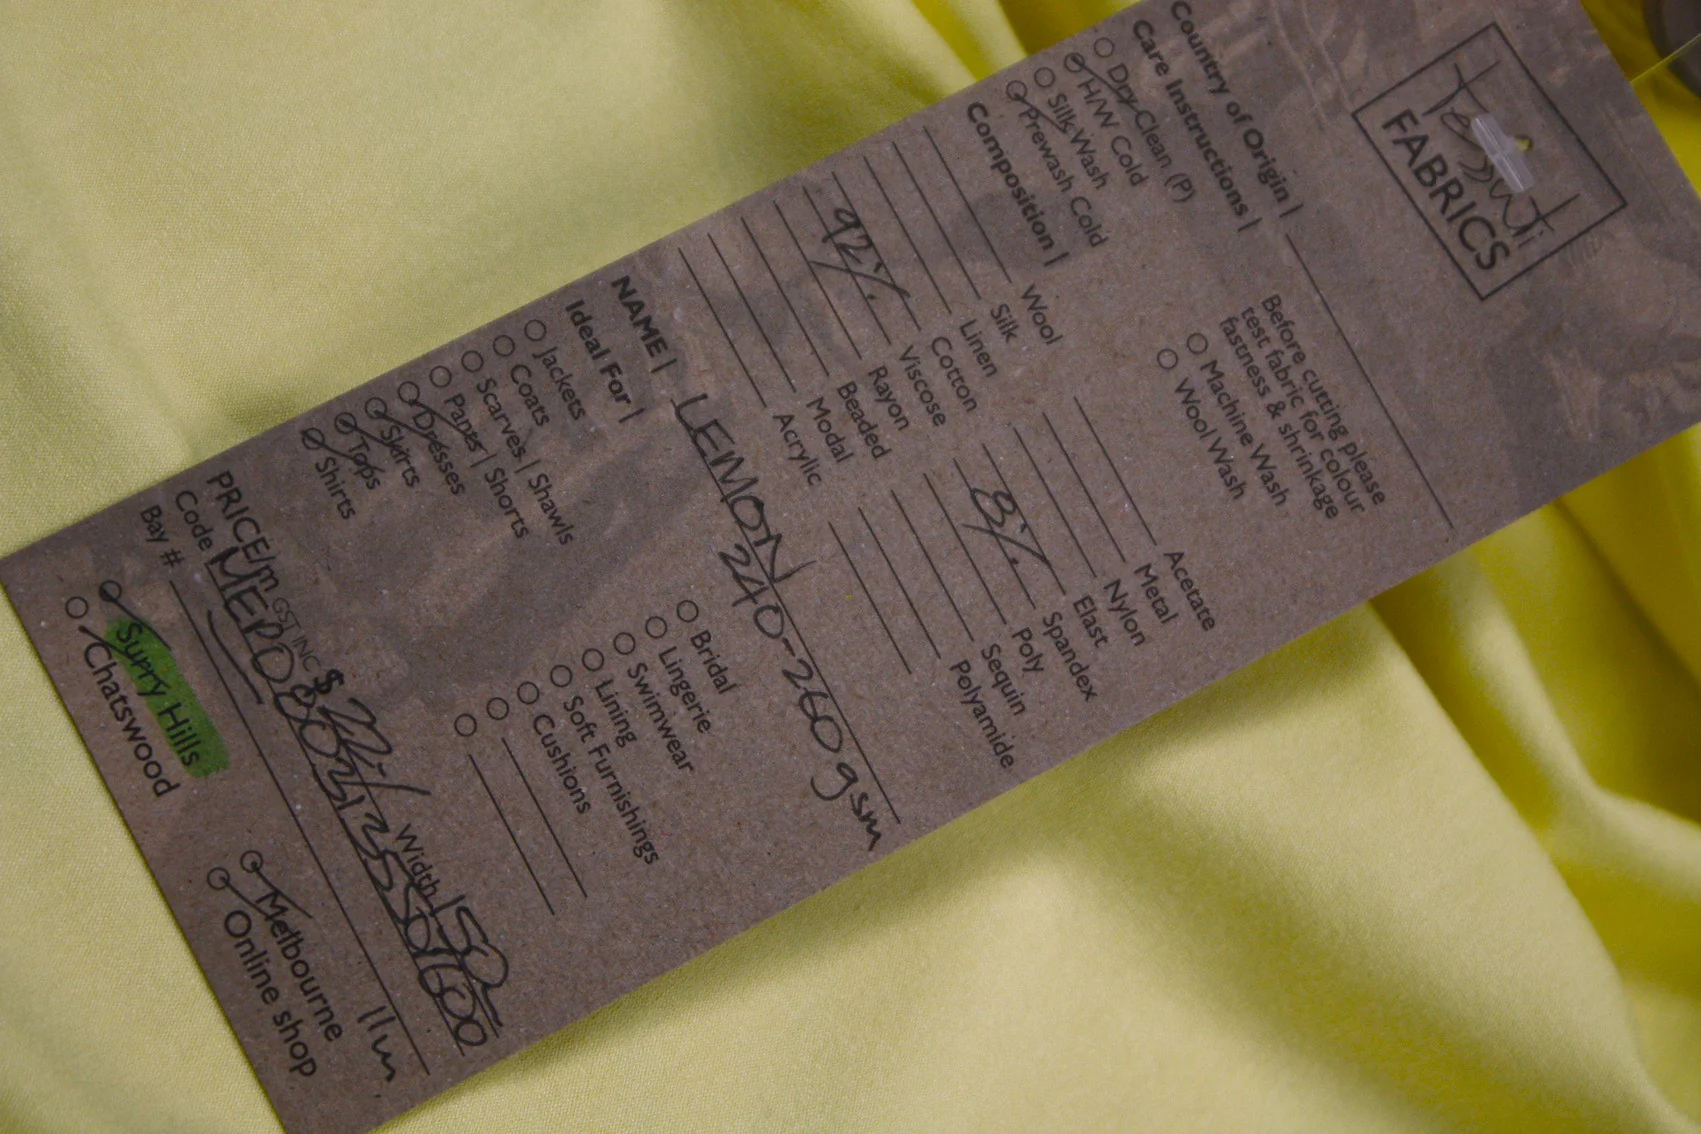 Tessuti
FABRICS
Country of Origin |
Care Instructions |
Before cutting please
test fabric for colour
fastness & shrinkage
Dry Clean (P)
H/W Cold
Machine Wash
Silk Wash
Wool Wash
Prewash Cold
Composition |
Wool Acetate
Silk Metal
Linen Nylon
Cotton Elast
92% Viscose 8% Spandex
Rayon Poly
Beaded Sequin
Modal Polyamide
Acrylic
NAME | LEMON 240-260gsm
Ideal For |
Jackets Bridal
Coats Lingerie
Scarves | Shawls Swimwear
Pants | Shorts Lining
Dresses Soft Furnishings
Skirts Cushions
Tops
Shirts
PRICE/m GST INC $ Width 150
Code
Bay # 11m
Surry Hills Melbourne
Chatswood Online shop